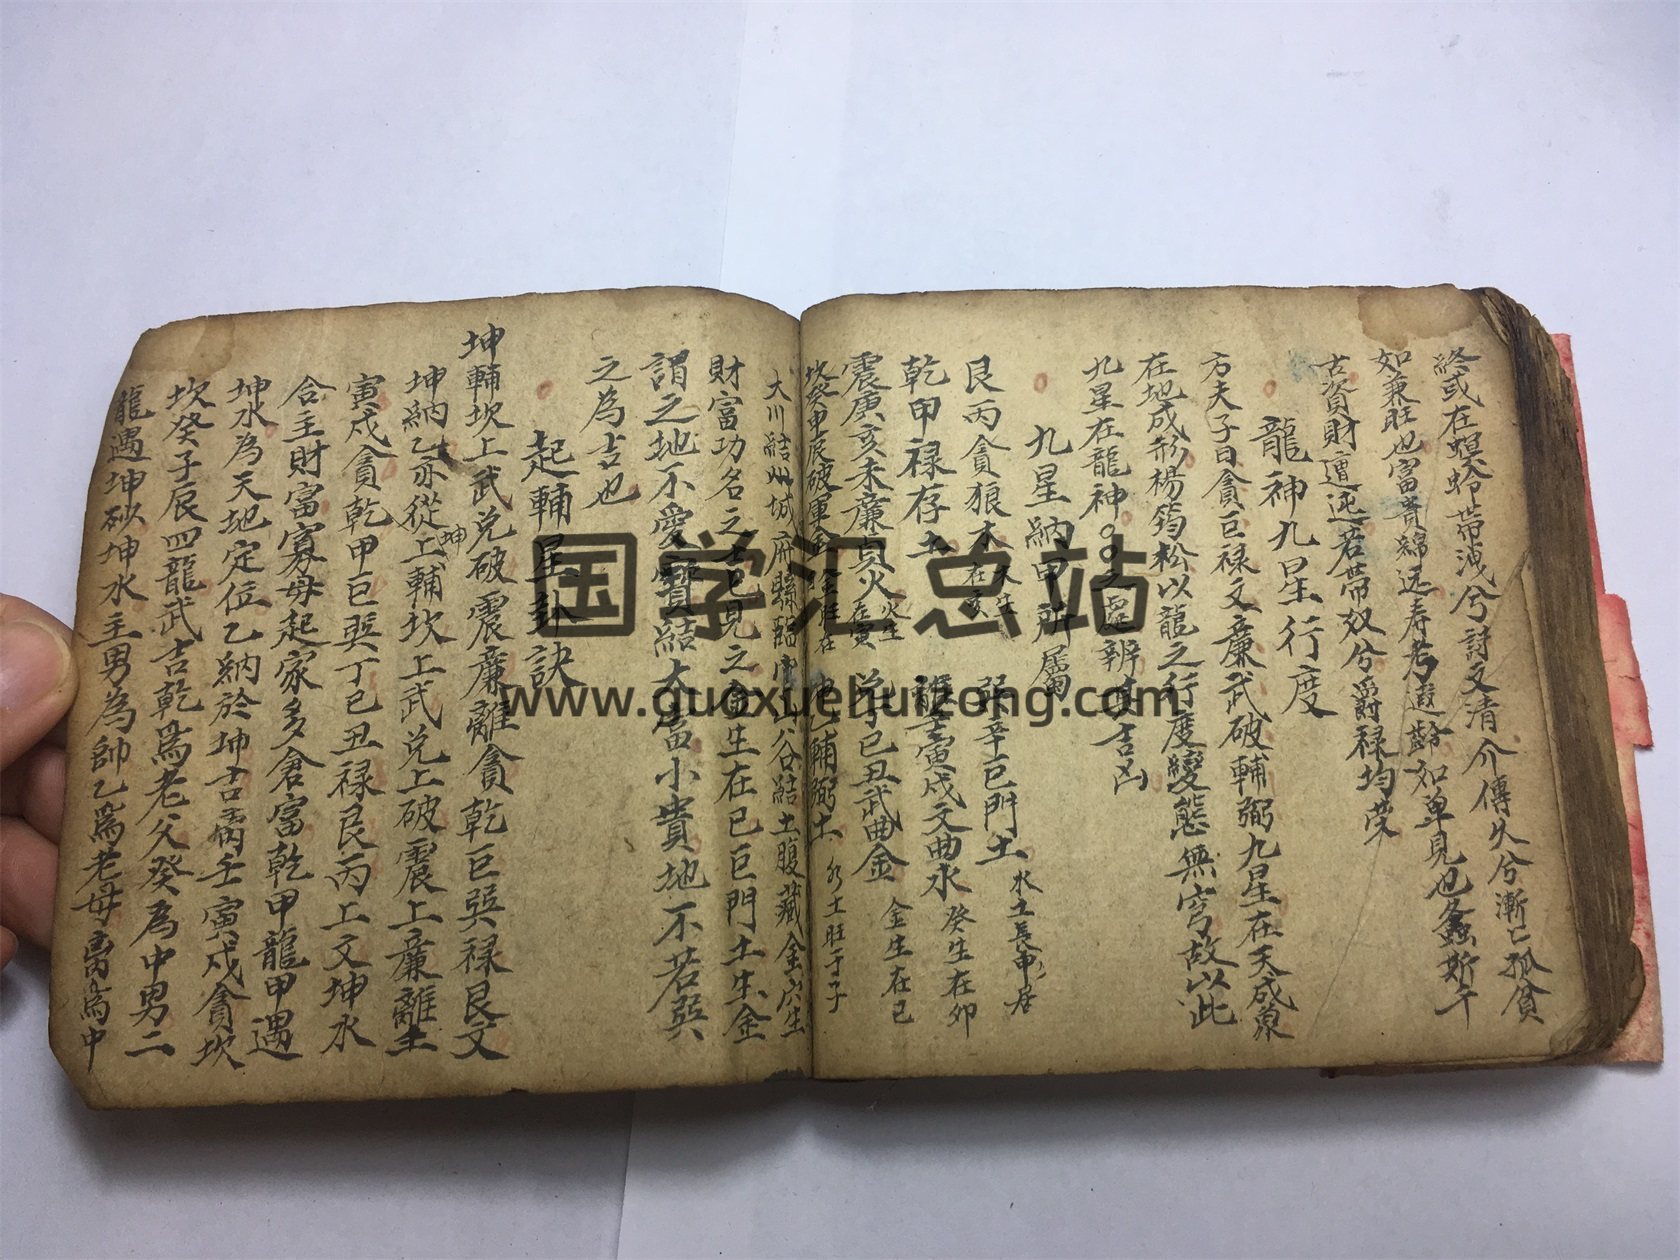 終或在螟蛉帶洩兮詩文清介傳久兮漸亡孤貧
如兼旺也富貴綿远寿考遐齡如单見也螽斯千
古資財遭迍若帶奴兮爵禄均荣
龍神九星行度
方夫子曰貪巨禄文亷武破輔弼九星在天成象
在地成形楊筠松以龍之行度變態無穷故以此
九星在龍神○○之處辨其吉凶
九星納甲所屬
艮丙貪狼木 木生在亥 巽辛巨門土 水土長申居
乾甲禄存土 離壬寅戌文曲水 癸生在卯
震庚亥未亷貞火 火生在寅 兌丁巳丑武曲金 金生在巳
坎癸申辰破軍金 輔弼土 水土旺于子
大川結州城府縣臨 山谷結土腹藏金穴生
財富功名之 見之金生在巳巨門土生金
謂之地不愛寶結大富小貴地不若巽
之為吉也
起輔星卦訣
坤輔坎上武兌破震亷離貪乾巨巽禄艮文
坤納乙亦從坤上輔坎上武兌上破震上亷離壬
寅戌貪乾甲巨巽丁巳丑禄艮丙上文坤水
合主財富寡母起家多倉富乾甲龍甲遇
坤水為天地定位乙納於坤吉 壬寅戌貪坎
坎癸子辰四龍武吉乾為老父癸為中男二
龍遇坤砂坤水主男為帥乙為老母离為中
国学汇总站
www.guoxuehuizong.com